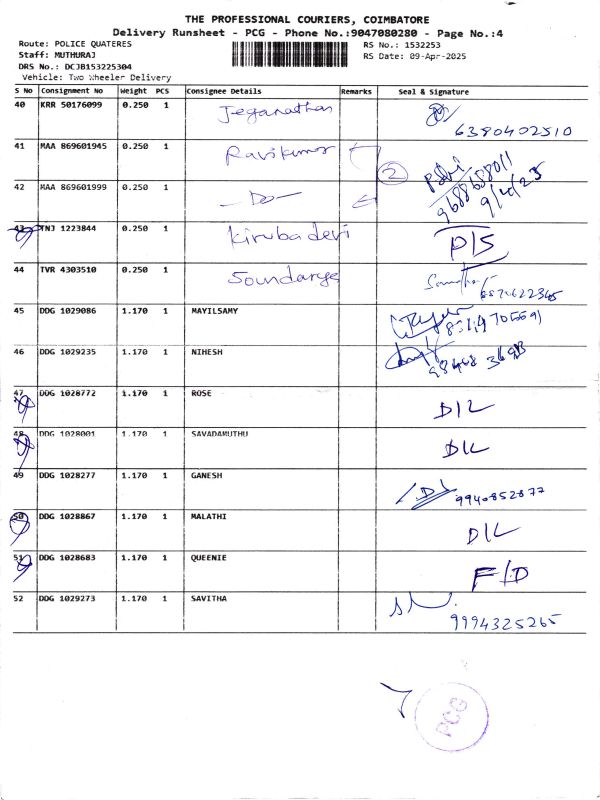 THE PROFESSIONAL COURIERS, COIMBATORE
Delivery Runsheet - PCG - Phone No.:9047080280 - Page No.:4
Route: POLICE QUATERES RS No.: 1532253
Staff: MUTHURAJ RS Date: 09-Apr-2025
DRS No.: DCJB153225304
Vehicle: Two Wheeler Delivery
S No Consignment No Weight PCS Consignee Details Remarks Seal & Signature
40 KRR 50176099 0.250 1 Jeganathan
6380402510
41 MAA 869601945 0.250 1 Ravikumar
2 9688658011
9/4/25
42 MAA 869601999 0.250 1 —Do—
43 TNJ 1223844 0.250 1 Kirubadevi P/S
44 TVR 4303510 0.250 1 Soundarya
45 DDG 1029086 1.170 1 MAYILSAMY
46 DDG 1029235 1.170 1 NIHESH
47 DDG 1028772 1.170 1 ROSE D/L
48 DDG 1028001 1.170 1 SAVADAMUTHU D/L
49 DDG 1028277 1.170 1 GANESH 9940852877
50 DDG 1028867 1.170 1 MALATHI D/L
51 DDG 1028683 1.170 1 QUEENIE F/D
52 DDG 1029273 1.170 1 SAVITHA
9994325265
PCG